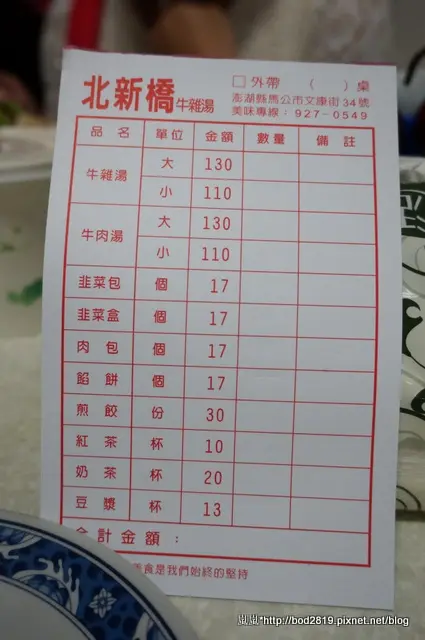 北新橋牛雜湯
□外帶 （ ）桌
澎湖縣馬公市文康街34號
美味專線：927-0549
品名 單位 金額 數量 備註
牛雜湯 大 130
小 110
牛肉湯 大 130
小 110
韭菜包 個 17
韭菜盒 個 17
肉包 個 17
餡餅 個 17
煎餃 份 30
紅茶 杯 10
奶茶 杯 20
豆漿 杯 13
合計金額：
美食是我們始終的堅持
嵐嵐*http://bod2819.pixnet.net/blog